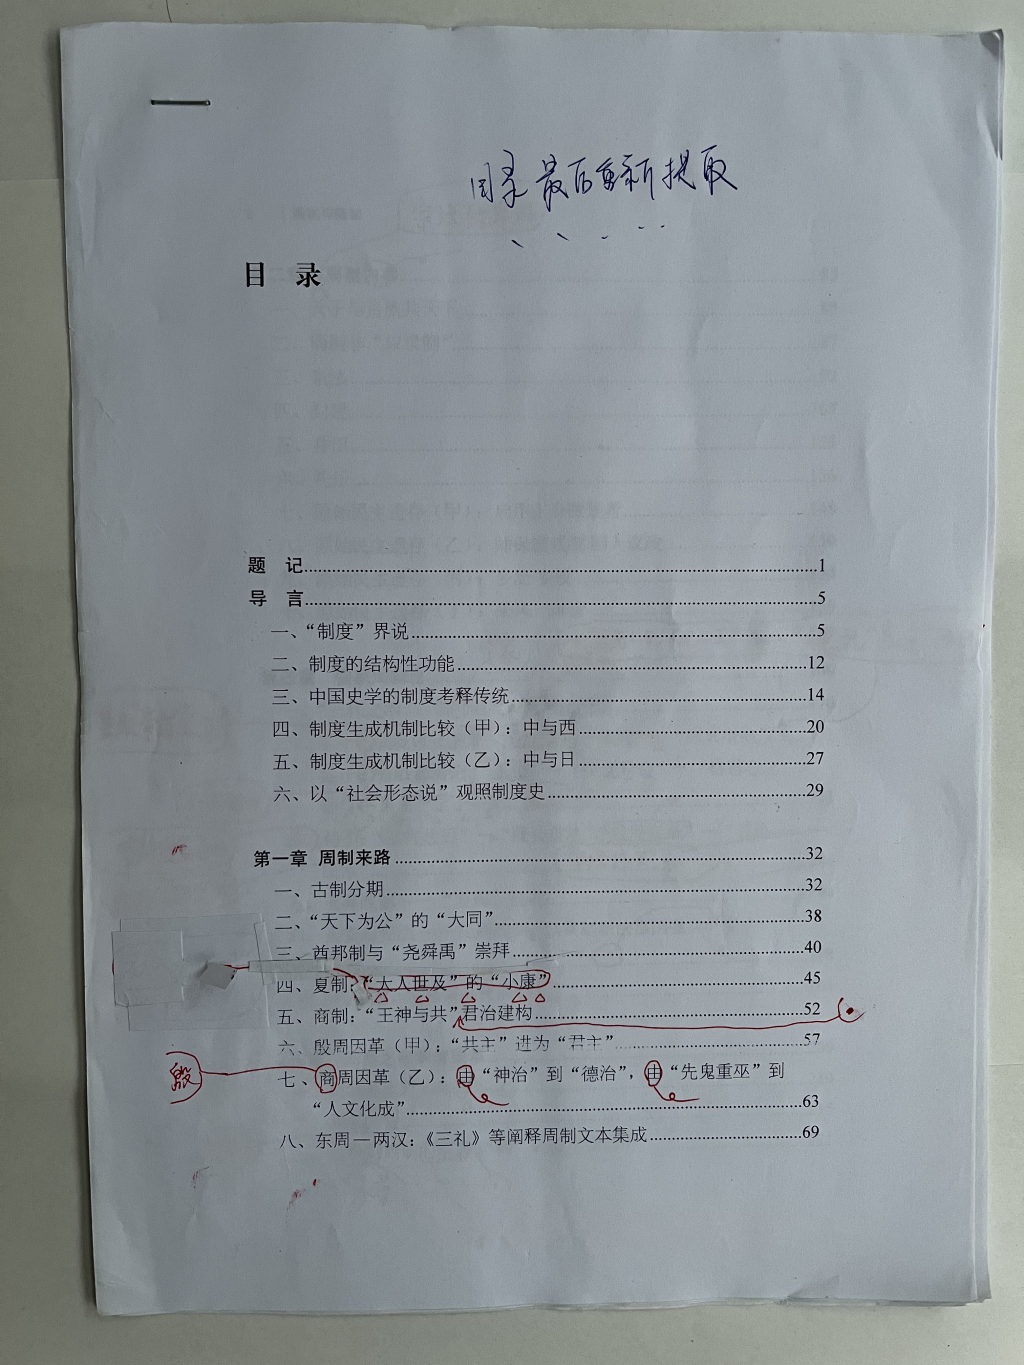 目录最后重新提取
目 录
题 记........1
导 言........5
一、“制度”界说........5
二、制度的结构性功能........12
三、中国史学的制度考释传统........14
四、制度生成机制比较（甲）：中与西........20
五、制度生成机制比较（乙）：中与日........27
六、以“社会形态说”观照制度史........29
第一章 周制来路........32
一、古制分期........32
二、“天下为公”的“大同”........38
三、酋邦制与“尧舜禹”崇拜........40
四、夏制：“大人世及”的“小康”........45
五、商制：“王神与共”君治建构........52
六、殷周因革（甲）：“共主”进为“君主”........57
殷
七、商周因革（乙）：由“神治”到“德治”，由“先鬼重巫”到
“人文化成”........63
八、东周—两汉：《三礼》等阐释周制文本集成........69